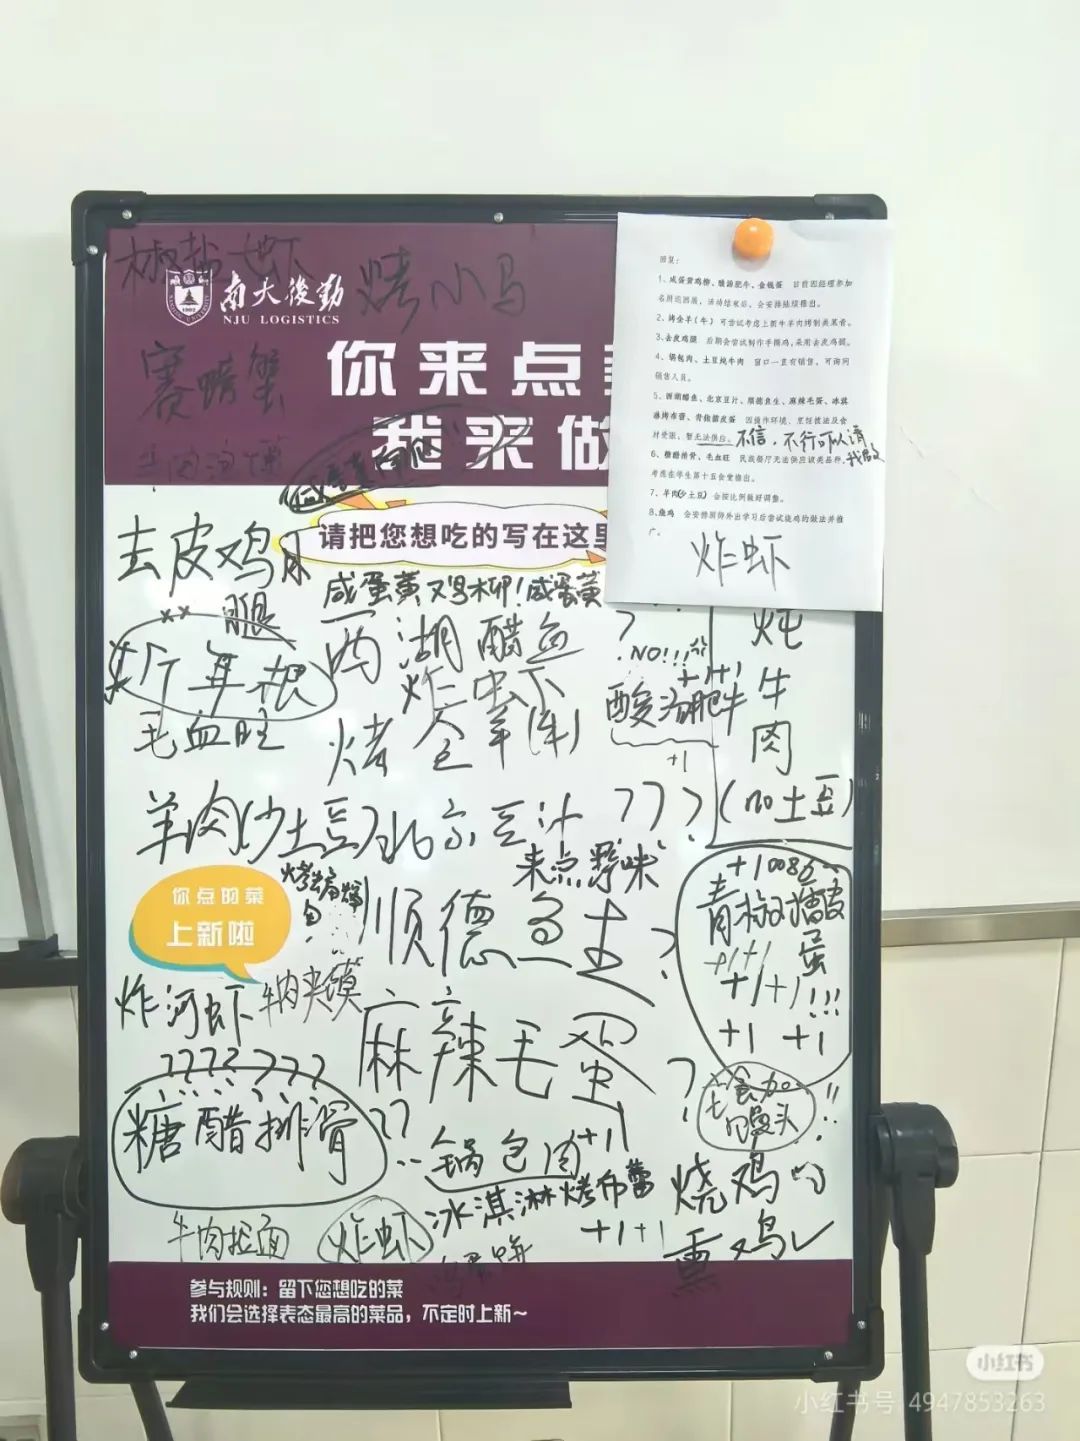 椒盐大虾
烤小马
南大後勤
NJU LOGISTICS
赛螃蟹
你来点
我来做
牛肉泡馍
请把您想吃的写在这里
回复：
1、咸蛋黄鸡柳、酸汤肥牛、金钱蛋 目前因经理参加
名厨巡回展，活动结束后，会安排陆续推出。
2、烤全羊（牛） 可尝试考虑上新牛羊肉烤制类菜肴。
3、去皮鸡腿 后期会尝试制作手撕鸡，采用去皮鸡腿。
4、锅包肉、土豆炖牛肉 窗口一直有销售，可询问
销售人员。
5、西湖醋鱼、北京豆汁、顺德鱼生、麻辣毛蛋、冰淇
淋烤布蕾、青椒擂皮蛋 因操作环境、烹饪技法及食
材受限，暂无法供应。不信，不行可以请
我做
6、糖醋排骨、毛血旺 民族餐厅无法供应该类品种，
考虑在学生第十五食堂推出。
7、羊肉（少土豆） 会按比例做好调整。
8、烧鸡 会安排厨师外出学习后尝试烧鸡的做法并推
广。
炸虾
去皮鸡
腿
咸蛋黄鸡柳！咸蛋黄
西湖醋鱼?
NO!!!
炸虾
毛血旺
烤全羊(牛)
酸汤肥牛
+1+1
+1
炖
牛
肉
(加土豆)
羊肉(少土豆)
北京豆汁???
来点野味
你点的菜
上新啦
顺德鱼生?
+10086
青椒擂皮
蛋
+1+1
+1+1!!!
+1 +1
炸河虾
牛肉夹馍
麻辣毛蛋?
???????
糖醋排骨
??
锅包肉+1
冰淇淋烤布蕾
+1+1
烧鸡
熏鸡
牛肉拉面
炸虾
鸡蛋饼
参与规则：留下您想吃的菜
我们会选择表态最高的菜品，不定时上新~
小红书
小红书号 4947853263